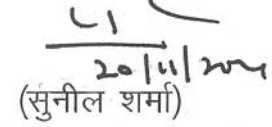 20/11/2024
(सुनील शर्मा)